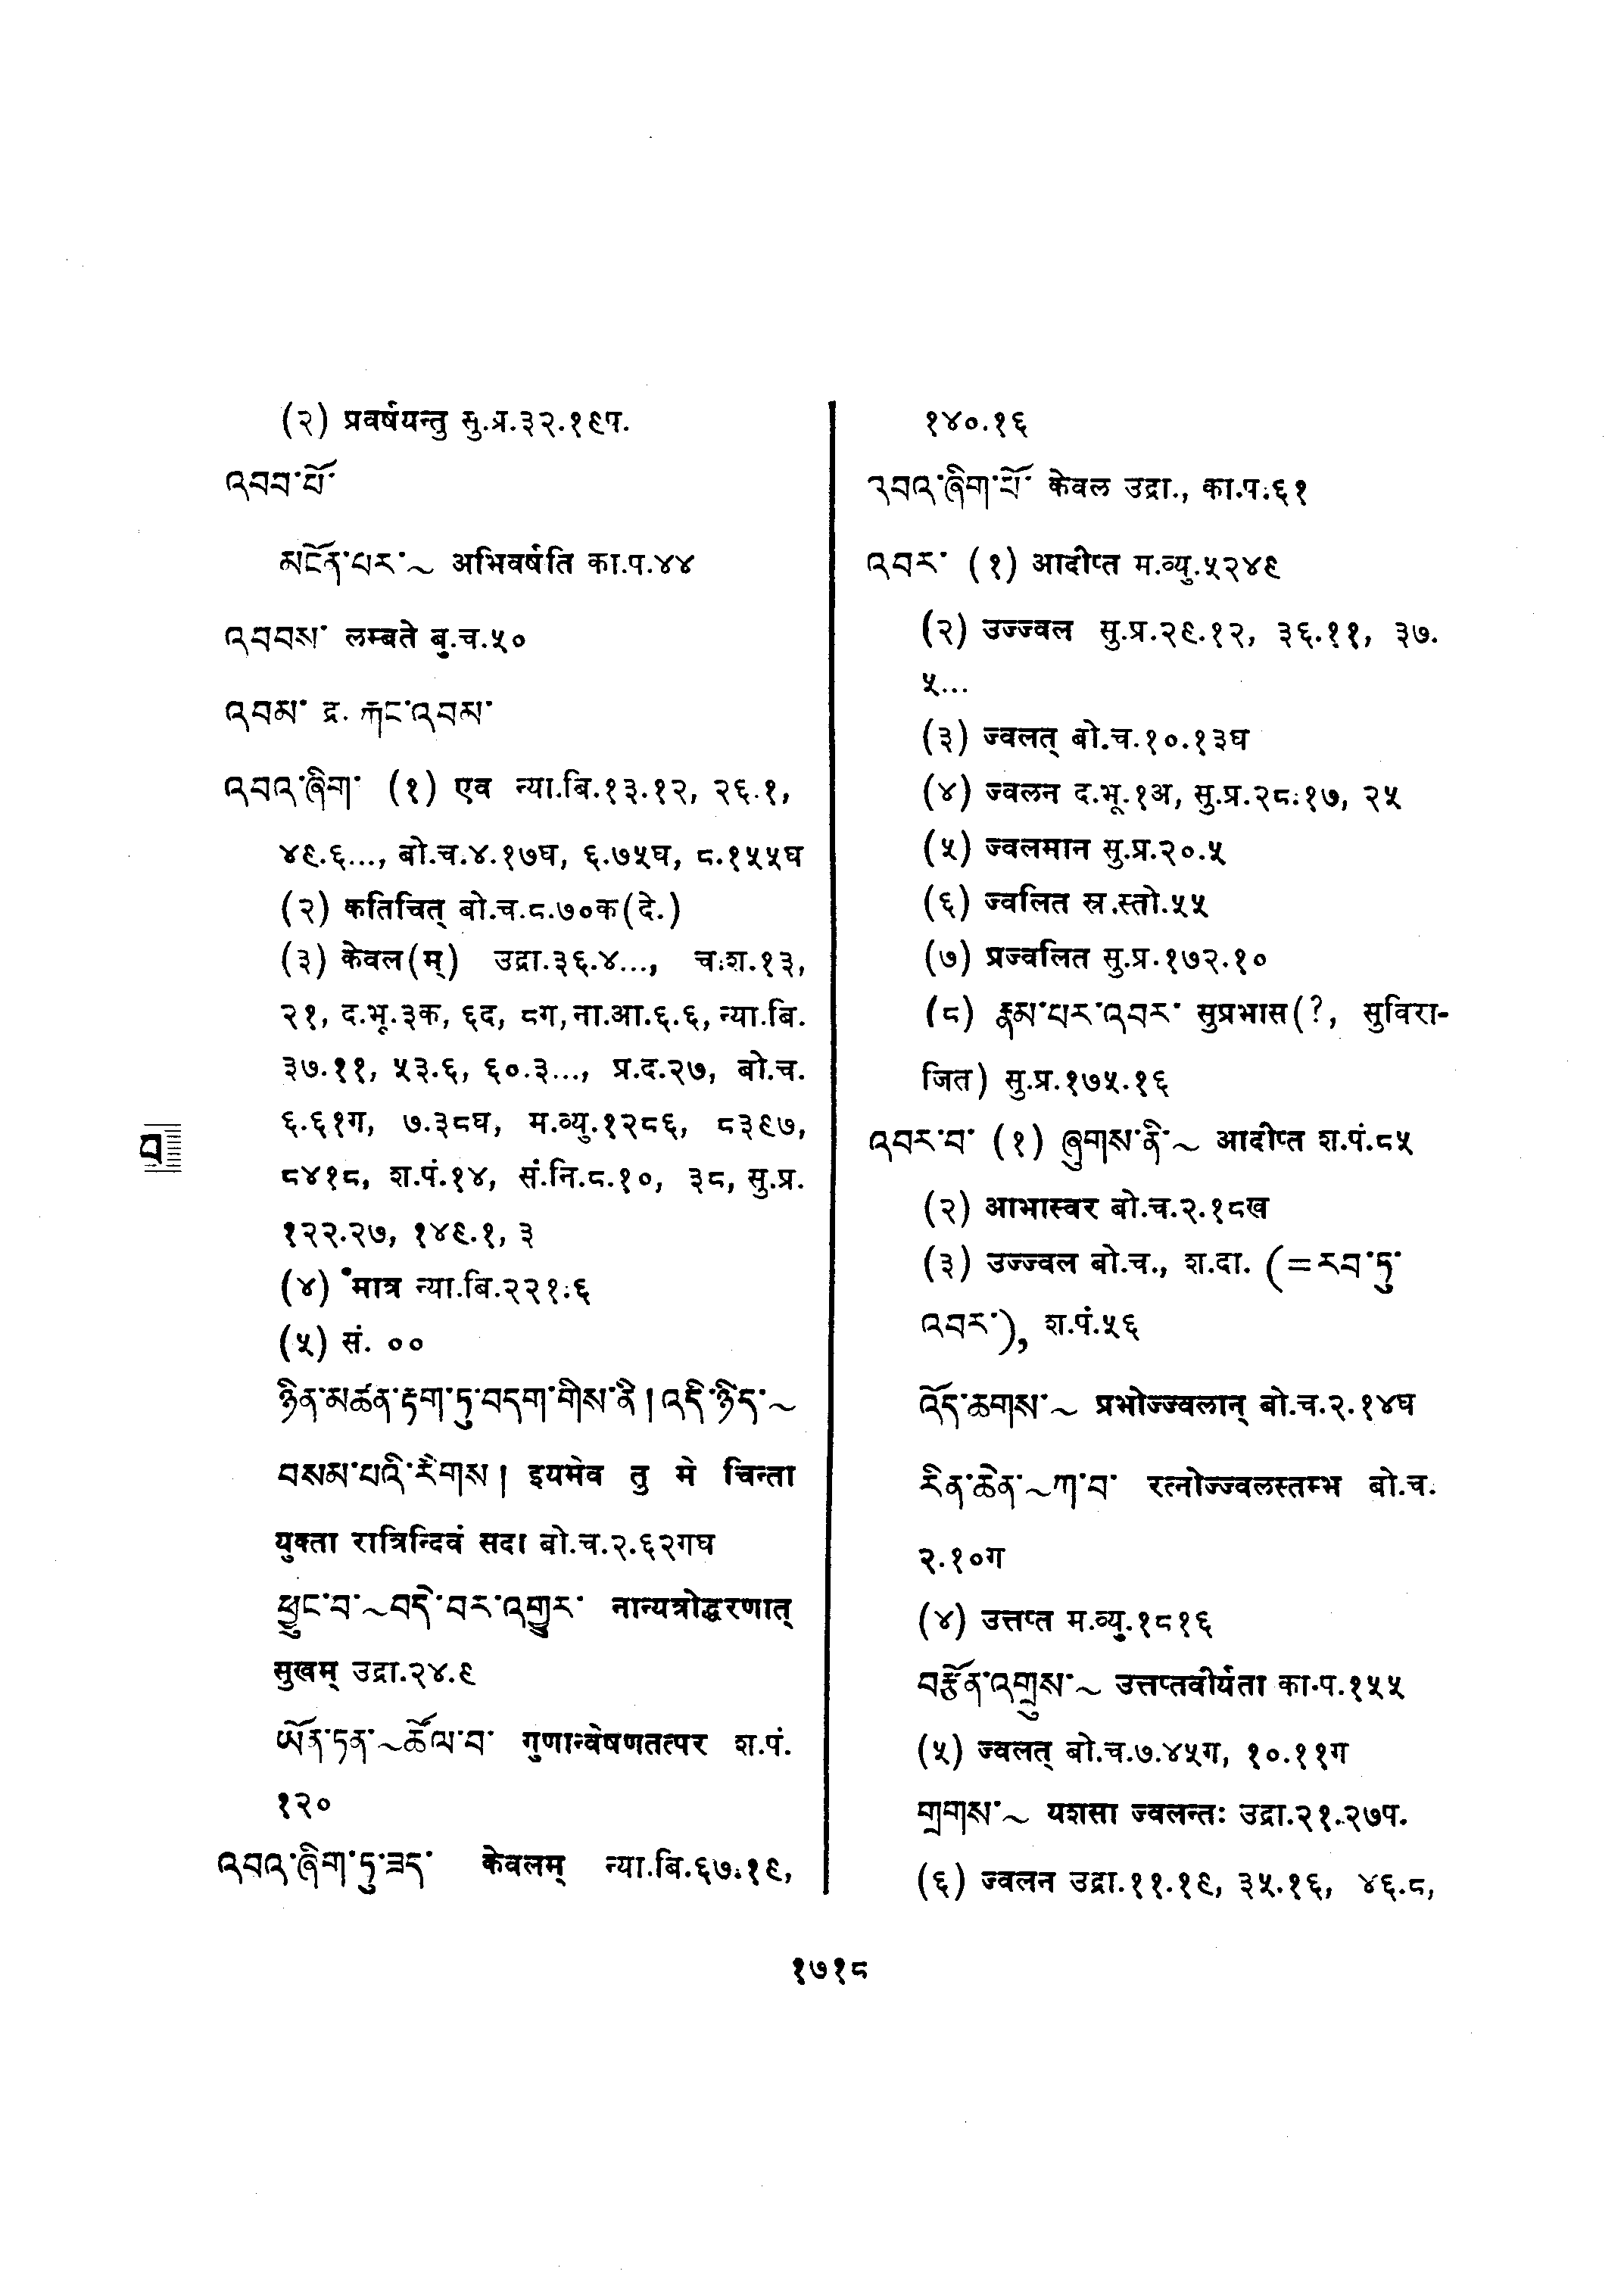 (२) प्रवर्षयन्तु सु.प्र.३२.१९प.
འབབ་པོ་
མངོན་པར་~ अभिवर्षति का.प.४४
འབབས་ लम्बते बु.च.५०
འབམ་ द्र. རྐང་འབམ་
འབའ་ཞིག་ (१) एव न्या.बि.१३.१२, २६.१,
४९.६..., बो.च.४.१७घ, ६.७५घ, ८.१५५घ
(२) कतिचित् बो.च.८.७०क(दे.)
(३) केवल(म्) उद्रा.३६.४..., च.श.१३,
२१, द.भू.३क, ६द, ८ग, ना.आ.६.६, न्या.बि.
३७.११, ५३.६, ६०.३..., प्र.द.२७, बो.च.
६.६१ग, ७.३८घ, म.व्यु.१२८६, ८३९७,
८४१८, श.पं.१४, सं.नि.८.१०, ३८, सु.प्र.
१२२.२७, १४९.१, ३
(४) °मात्र न्या.बि.२२१.६
(५) सं. ००
ཉིན་མཚན་རྟག་ཏུ་བདག་གིས་ནི། འདི་ཉིད་~
བསམ་པའི་རིགས། इयमेव तु मे चिन्ता
युक्ता रात्रिन्दिवं सदा बो.च.२.६२गघ
ཕྱུང་བ་~བདེ་བར་འགྱུར་ नान्यत्रोद्धरणात्
सुखम् उद्रा.२४.९
ཡོན་ཏན་~ཚོལ་བ་ गुणान्वेषणतत्पर श.पं.
१२०
འབའ་ཞིག་ཏུ་ཟད་ केवलम् न्या.बि.६७.१९,
१४०.१६
འབའ་ཞིག་པོ་ केवल उद्रा., का.प.६१
འབར་ (१) आदीप्त म.व्यु.५२४९
(२) उज्ज्वल सु.प्र.२९.१२, ३६.११, ३७.
५...
(३) ज्वलत् बो.च.१०.१३घ
(४) ज्वलन द.भू.१अ, सु.प्र.२८.१७, २५
(५) ज्वलमान सु.प्र.२०.५
(६) ज्वलित स्र.स्तो.५५
(७) प्रज्वलित सु.प्र.१७२.१०
(८) རྣམ་པར་འབར་ सुप्रभास(?, सुविरा-
जित) सु.प्र.१७५.१६
འབར་བ་ (१) ཞུགས་ནི་~ आदीप्त श.पं.८५
(२) आभास्वर बो.च.२.१८ख
(३) उज्ज्वल बो.च., श.दा. (=རབ་ཏུ་
འབར་), श.पं.५६
འོད་ཆགས་~ प्रभोज्ज्वलान् बो.च.२.१४घ
རིན་ཆེན་~ཀ་བ་ रत्नोज्ज्वलस्तम्भ बो.च.
२.१०ग
(४) उत्तप्त म.व्यु.१८१६
བརྩོན་འགྲུས་~ उत्तप्तवीर्यता का.प.१५५
(५) ज्वलत् बो.च.७.४५ग, १०.११ग
གྲགས་~ यशसा ज्वलन्तः उद्रा.२१.२७प.
(६) ज्वलन उद्रा.११.१९, ३५.१६, ४६.८,
བ
१७१८